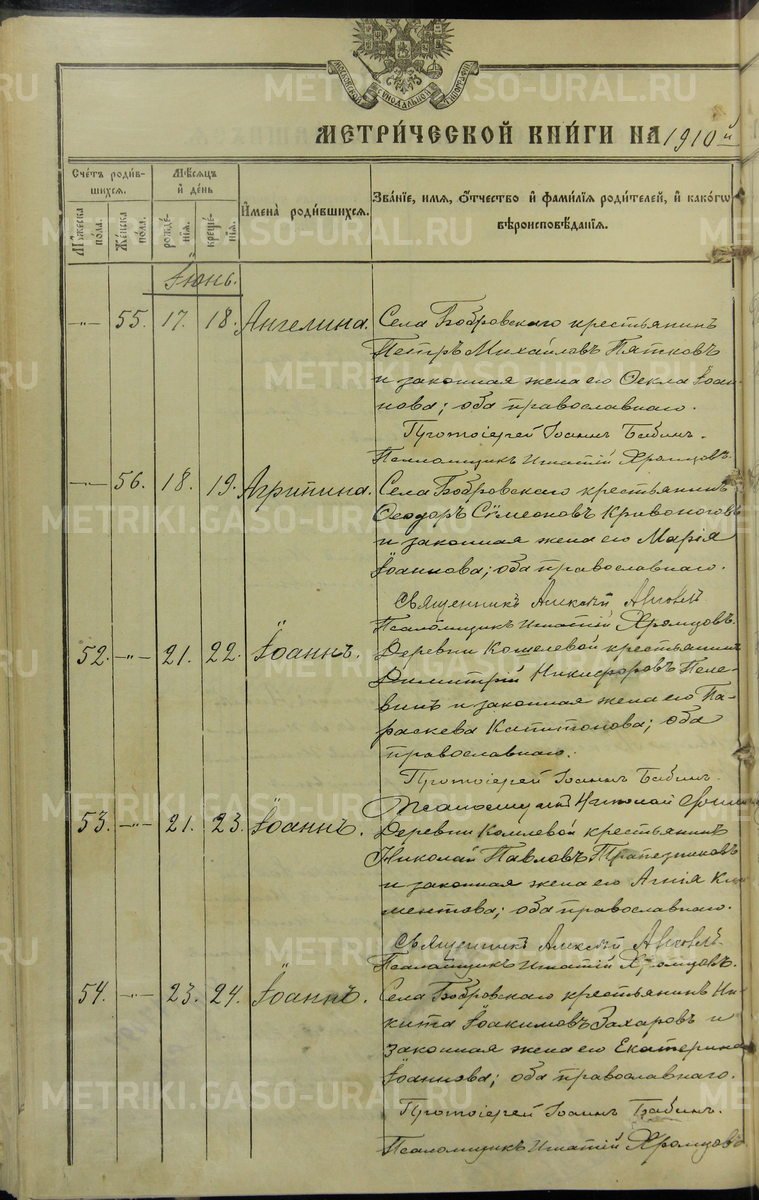 МОСКОВСКОЙ СѴНОДАЛЬНОЙ ТИПОГРАФІИ
МЕТРИ́ЧЕСКОЙ КНИ́ГИ НА 1910й
Сче́тъ роди́в-
шихся.
Мѣ́сяцъ
и҆ де́нь
Мꙋ́жеска
по́ла.
Же́нска
по́ла.
рожде́-
нїя.
креще́-
нїя.
И҆мена̀ роди́вшихся.
Зва́нїе, и҆́мя, ѻ҆́тчество и҆ фами́лїя роди́телей, и҆ како́гѡ
вѣроисповѣ́данїя.
Іюнь.
—"— 55. 17. 18. Ангелина. Села Бобровскаго крестьянинъ
Петръ Михайловъ Пятковъ
и законная жена его Ѳекла Іоан-
нова; оба православнаго.
Протоіерей Іоаннъ Бабинъ.
Псаломщикъ Игнатій Хромцовъ.
—"— 56. 18. 19. Агрипина. Села Бобровскаго крестьянинъ
Ѳеодоръ Сѵмеоновъ Кривоноговъ
и законная жена его Марія
Іоаннова; оба православнаго.
Священникъ Алексій
Псаломщикъ Игнатій Хромцовъ.
52. —"— 21. 22. Іоаннъ. Деревни Кошелевой крестьянинъ
Димитрій Никифоровъ Пеле-
винъ и законная жена его Па-
раскева Капитонова; оба
православнаго.
Протоіерей Іоаннъ Бабинъ.
Псаломщикъ Николай
53. —"— 21. 23. Іоаннъ. Деревни крестьянинъ
Николай Павловъ Трапезниковъ
и законная жена его Агнія Кли-
ментова; оба православнаго.
Священникъ Алексій
Псаломщикъ Игнатій Хромцовъ.
54. —"— 23. 24. Іоаннъ. Села Бобровскаго крестьянинъ Ни-
кита Іоакимовъ Захаровъ и
законная жена его Екатерина
Іоаннова; оба православнаго.
Протоіерей Іоаннъ Бабинъ.
Псаломщикъ Игнатій Хромцовъ
METRIKI.GASO-URAL.RU